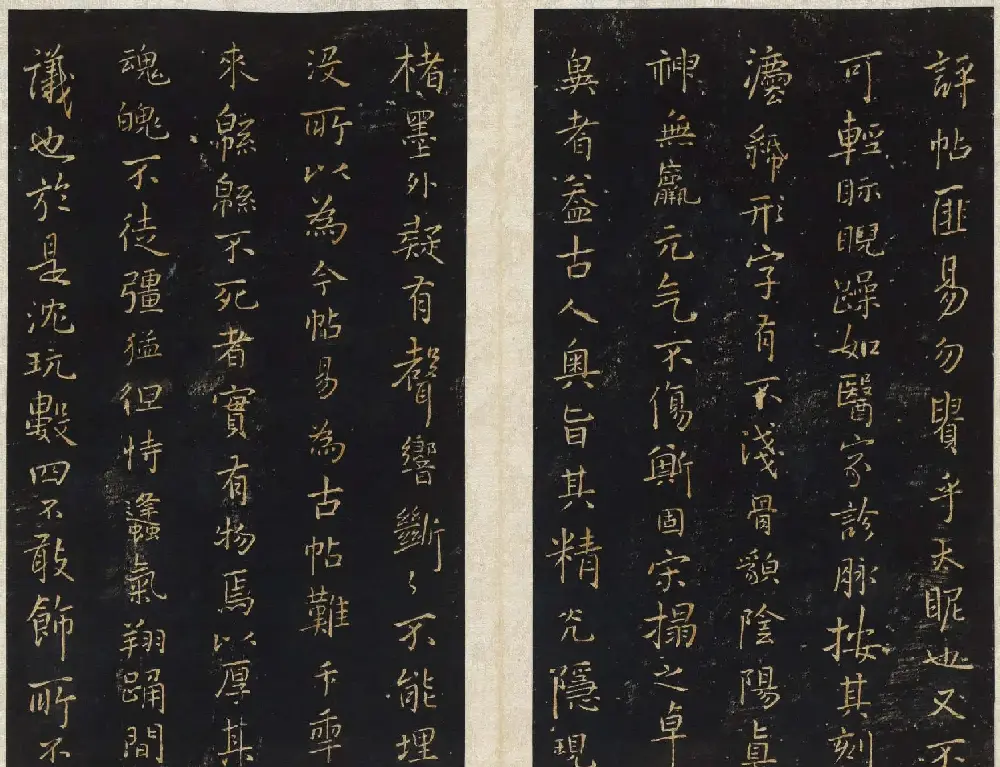 評帖匪易勿譽乎天眤也又不
可輕眎睨躁如醫家診脉按其刻
形字有不淺骨貌陰陽真
神無羸元气不傷斯固宋搨之卓
鼻者益古人奧旨其精光隱現
楮墨外凝有聲響斷〻不能埋
沒所以為今帖易為古帖難千秊
來緜緜不死者實有物焉以厚其
魂魄不徒彊猛但恃蠭氣翔踊間
議也於是沈玩數四不敢飾所不